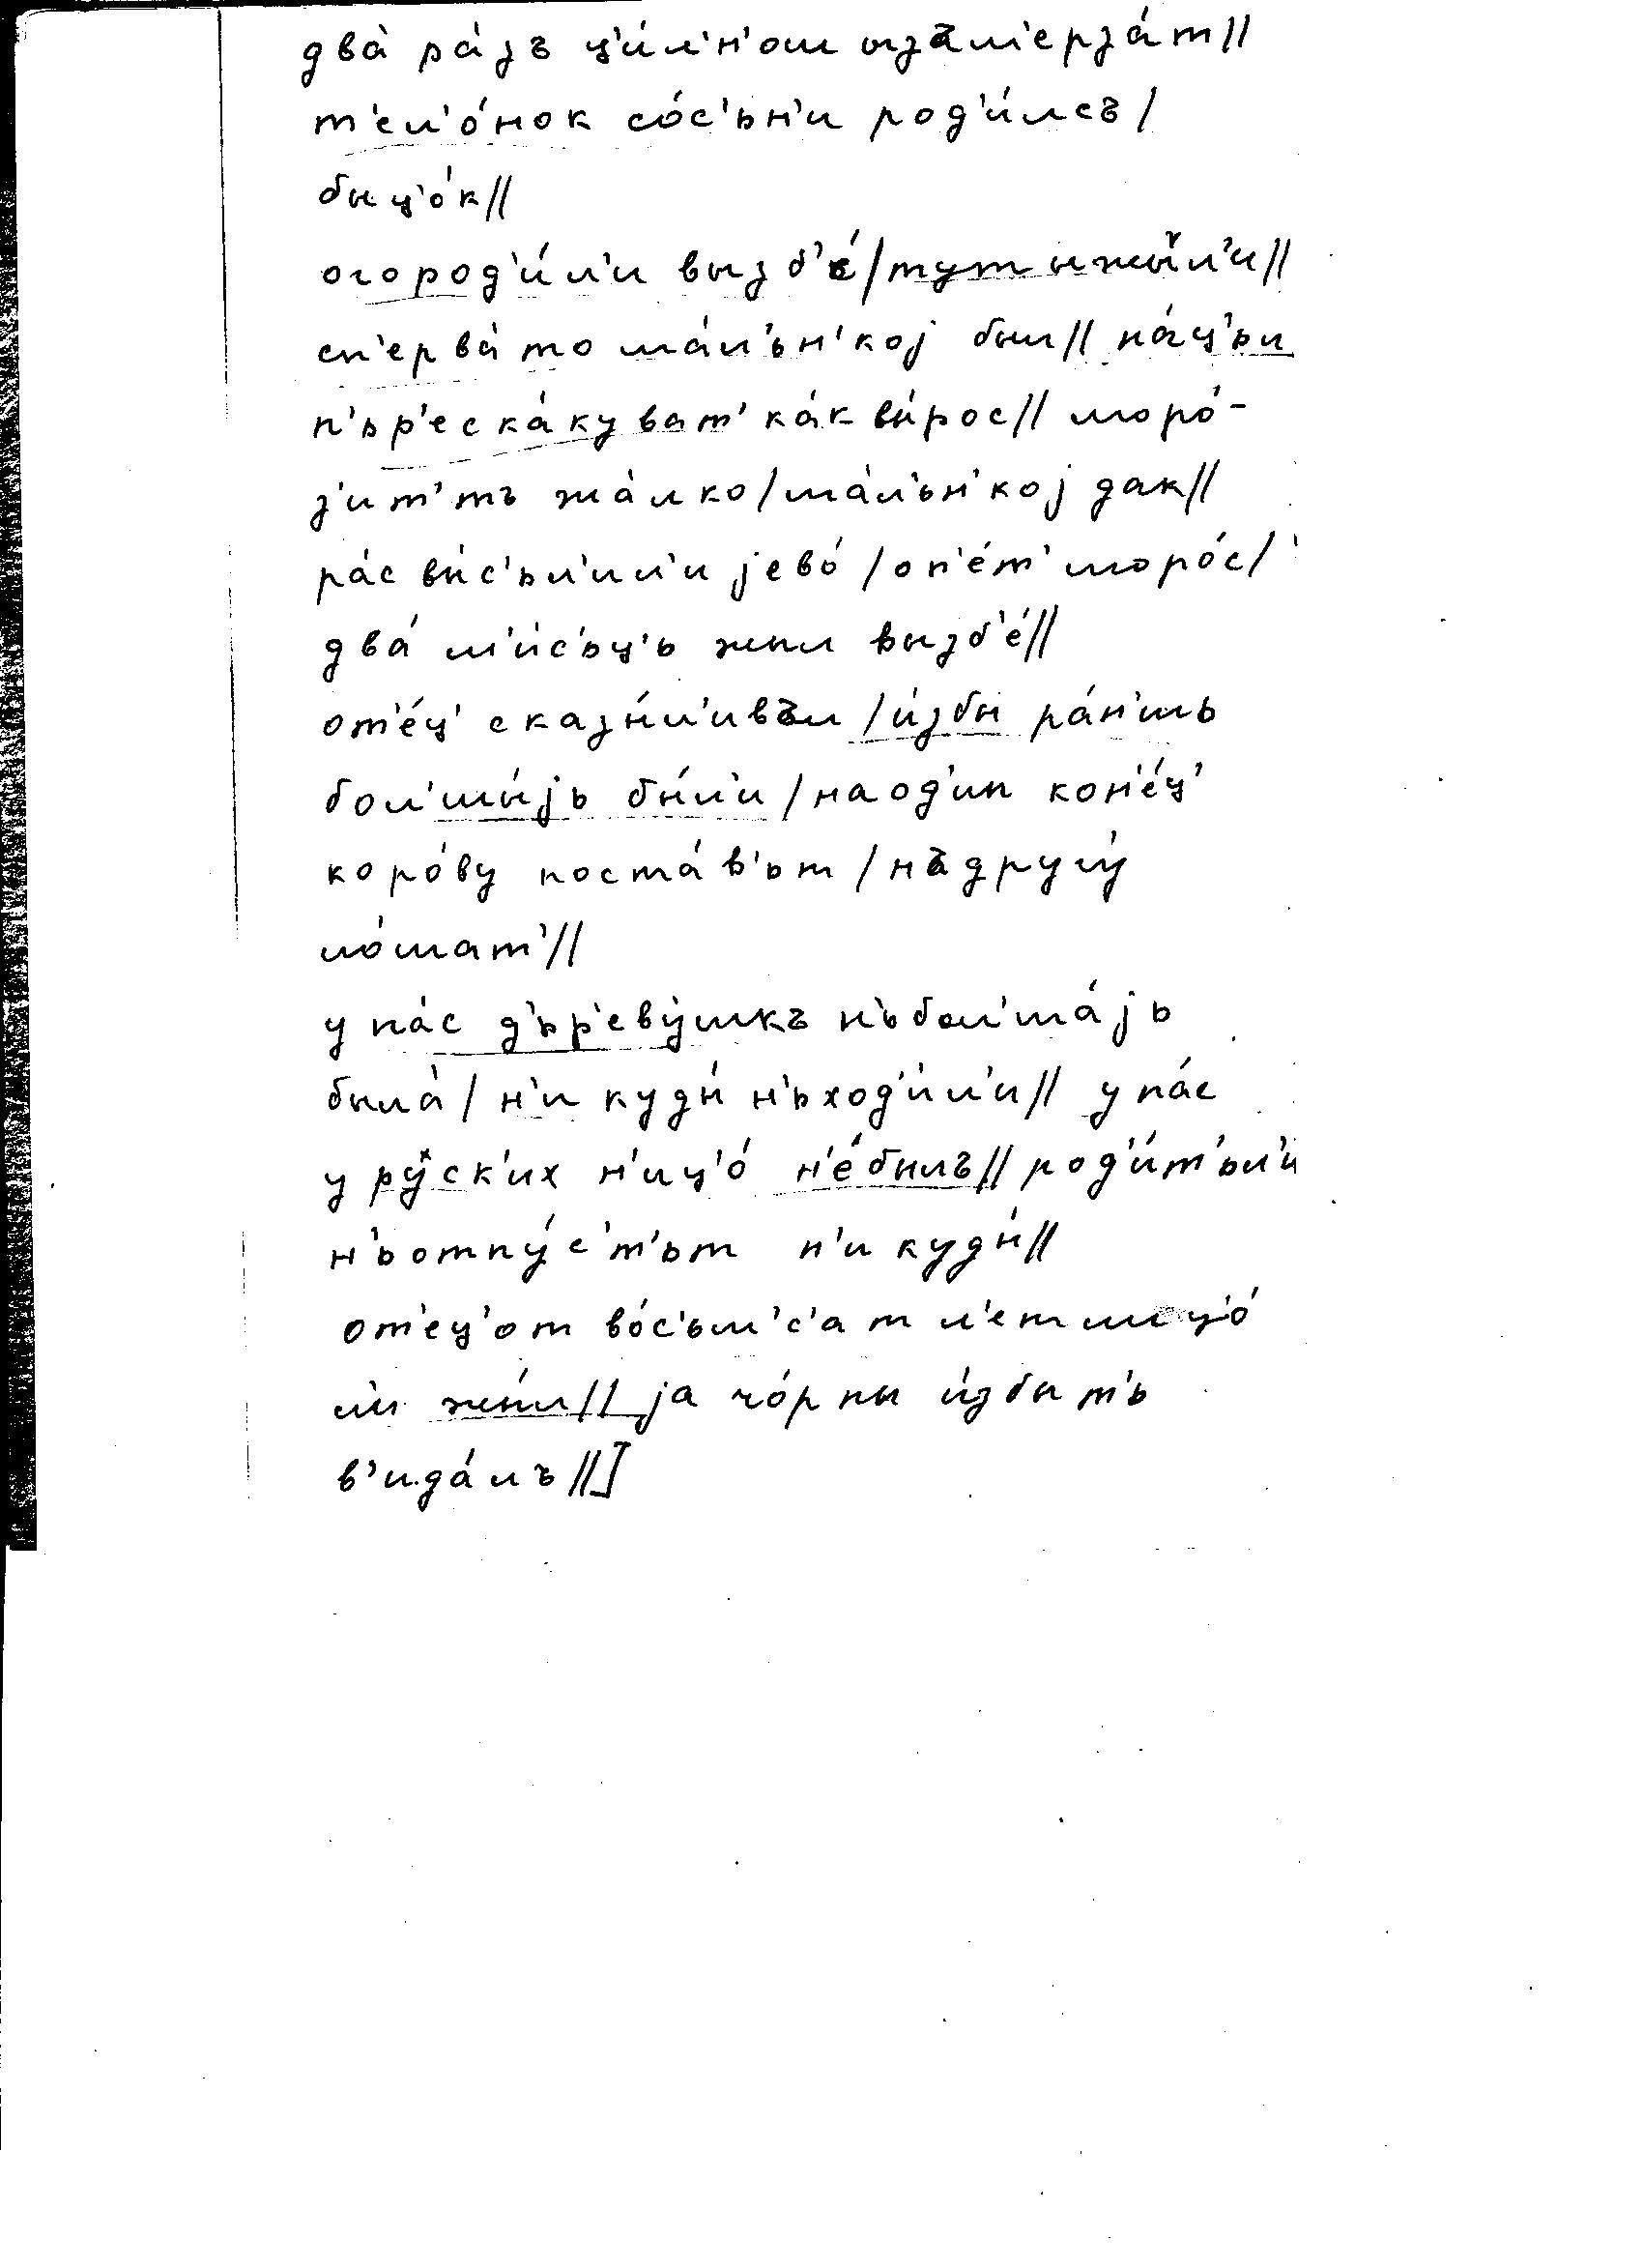 два́ ра́зъ ц'и́л'н'ош ызъм'ерза́т//
т'ел'о́нок со́с'ьн'и род'и́лсъ/
быц'о́к//
огород'и́л'и вызб'е́/тут ыжы́л'и//
сп'ерва́то ма́л'ьн'кој был// на́ц'ьл
п'ьр'еска́куват' ка́к вы́рос// моро́-
з'ит'тъ жа́лко/ма́л'ьн'кој дак//
ра́с вы́с'ьл'ил'и јево́/оп'е́т' моро́с/
два́ м'и́с'ьц'ь жыл вызб'е́//
от'е́ц' сказы́л'ивъл/и́збы ра́н'шь
бол'шы́јь бы́л'и/на од'ин кон'е́ц'
коро́ву поста́в'ьт/нъ другу́
ло́шат'//
у на́с д'ьр'еву́шкъ н'ьбол'ша́јь
была́/н'и куды́ н'ьход'и́л'и// у на́с
у ру́ск'их н'иц'о́ н'е́былъ// род'и́т'ьл'и
н'ьотпу́с'т'ьт н'и куды́//
от'ец'от во́с'ьм'с'ат л'ет шцо́
л'и жы́л// ја чо́рны и́збы т'ь
в'ида́лъ//]